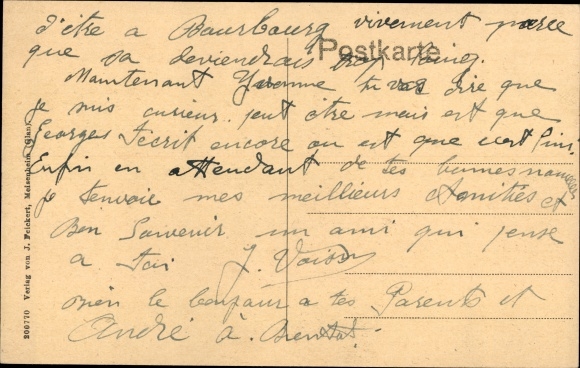 d'être a Bourbourg vivement parce
que sa deviendrais long.
Postkarte
Maintenant Yvonne tu vas dire que
je suis curieux peut être mais est que
Georges t'écrit encore ou est que c'est fini.
Enfin en attendant de tes bonnes nouvelles
je t'envoie mes meilleurs Amitiés et
Bon Souvenir un ami qui pense
a toi J. Voisin
bien le bonjour a tes Parents et
André à Bientot.
200770 Verlag von J. Feickert, Meisenheim (Glan)